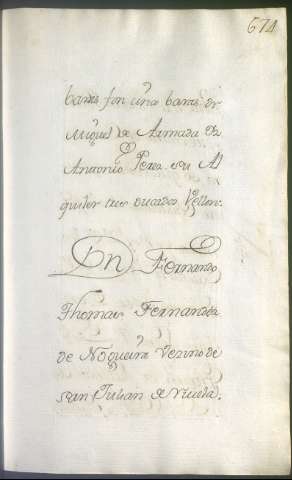 674
barras son una barras de
Miguel de Armada de
Antonio Perez su Al
quiler tres ducados Vellon.
Dn Fernando
Thomas Fernandez
de Nogueira Vezino de
san Julian de